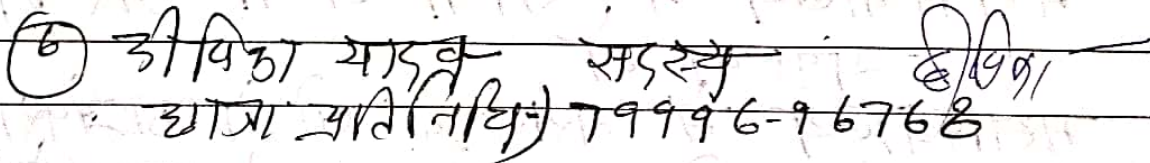 ⑥ दीपिका यादव सदस्य दीपिका
छात्रा प्रतिनिधि) 79996-96768